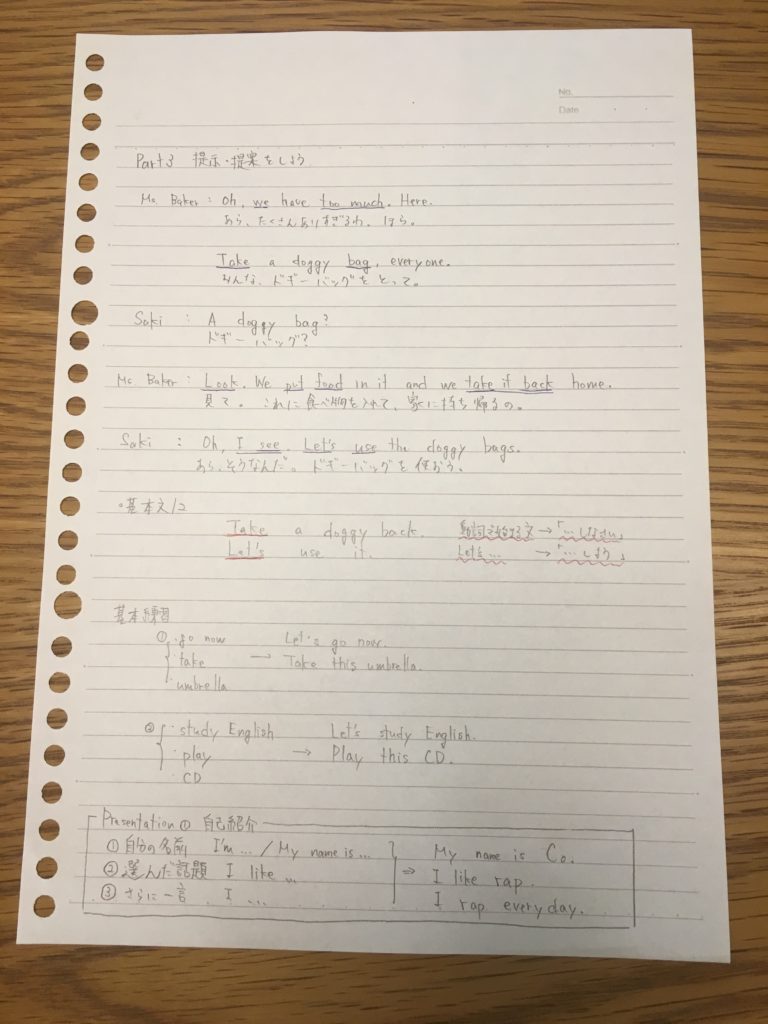 No.
Date
Part3 提示・提案をしよう
Ms. Baker : Oh, we have too much. Here.
あら、たくさんありすぎるわ、ほら。
Take a doggy bag, everyone.
みんな、ドギーバッグをとって。
Saki : A doggy bag?
ドギーバッグ?
Ms. Baker : Look. We put food in it and we take it back home.
見て。これに食べ物を入れて、家に持ち帰るの。
Saki : Oh, I see. Let's use the doggy bags.
あら、そうなんだ。ドギーバッグを使おう。
・基本文12
Take a doggy back. 動詞で始まる文→「…しなさい」
Let's use it. Let's … →「…しよう」
基本練習
① ・go now Let's go now.
・take → Take this umbrella.
・umbrella
② ・study English Let's study English.
・play → Play this CD.
・CD
Presentation ① 自己紹介
① 自分の名前 I'm … / My name is … My name is Co.
② 選んだ話題 I like … ⇒ I like rap.
③ さらに一言 I … I rap everyday.